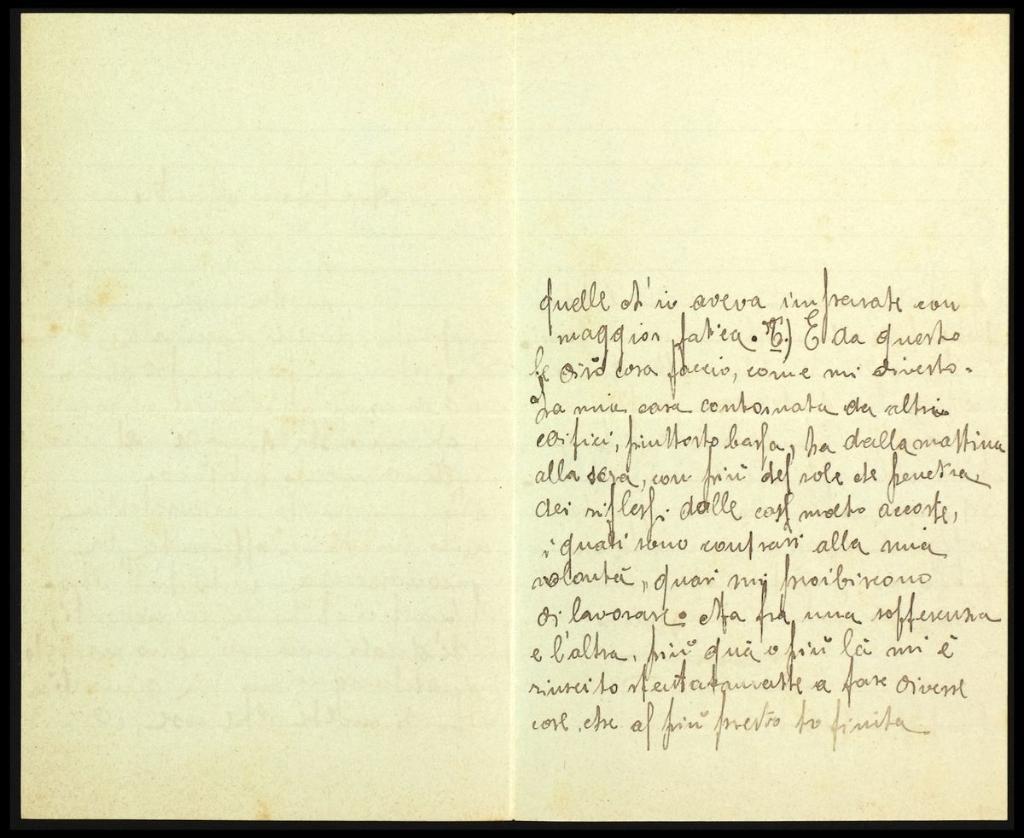 quelle ch'io aveva imparate con
maggior fatica. E da questo
Le dirò cosa faccio, come mi diverto.
La mia casa contornata da altri
edifici, piuttosto bassa, ha dalla mattina
alla sera, con più del sole che penetra,
dei riflessi dalle case molto accoste,
i quali sono contrari alla mia
volontà, quasi mi proibiscono
di lavorare. Ma fra una sofferenza
e l'altra, più quà o più là mi è
riuscito a fare diverse
cose, che al più presto finita